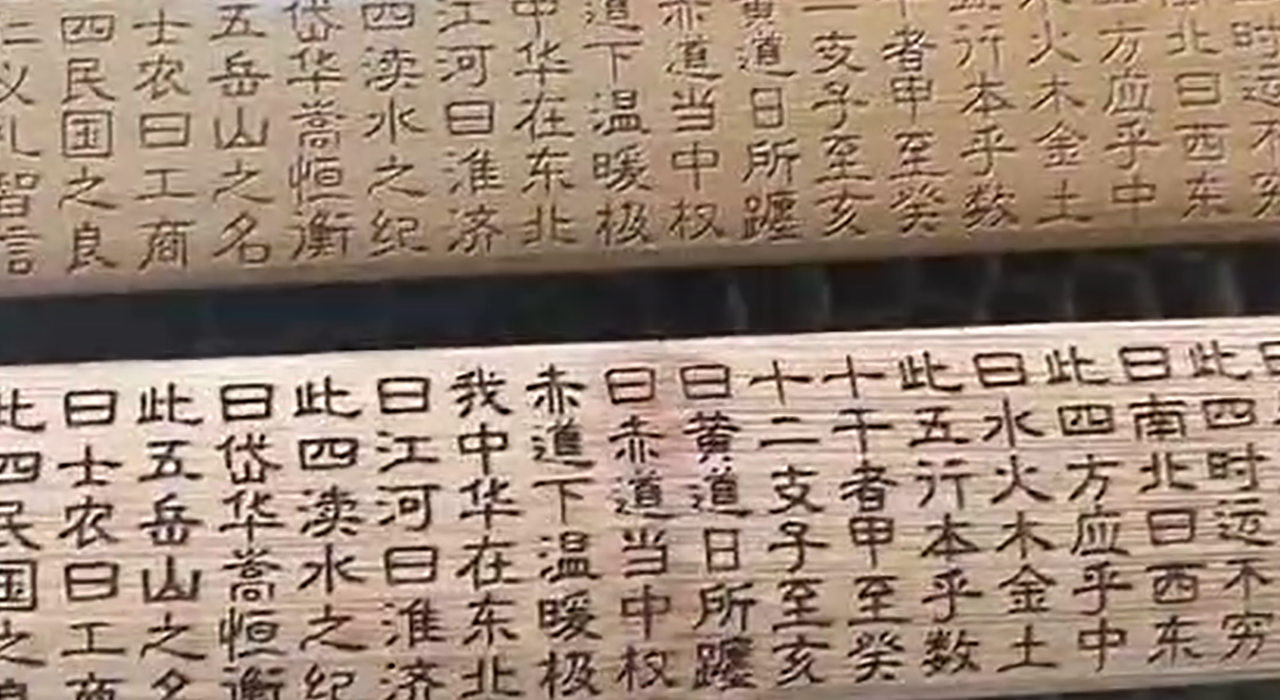 时运不穷
北曰西东
方应乎中
火木金土
行本乎数
者甲至癸
二支子至亥
黄道日所躔
赤道当中权
道下温暖极
中华在东北
江河曰淮济
四渎水之纪
岱华嵩恒衡
五岳山之名
士农曰工商
四民国之良
仁义礼智信
曰
此四时运不穷
曰南北曰西东
此四方应乎中
曰水火木金土
此五行本乎数
十干者甲至癸
十二支子至亥
曰黄道日所躔
曰赤道当中权
赤道下温暖极
我中华在东北
曰江河曰淮济
此四渎水之纪
曰岱华嵩恒衡
此五岳山之名
曰士农曰工商
此四民国之良